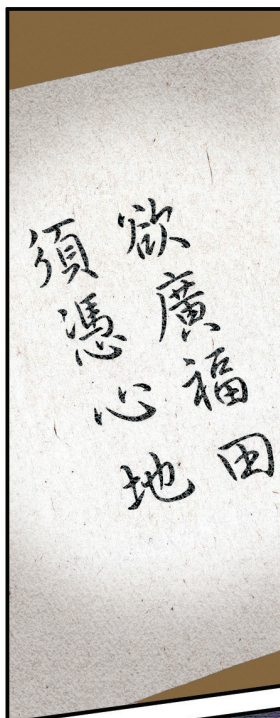 欲廣福田
須憑心地